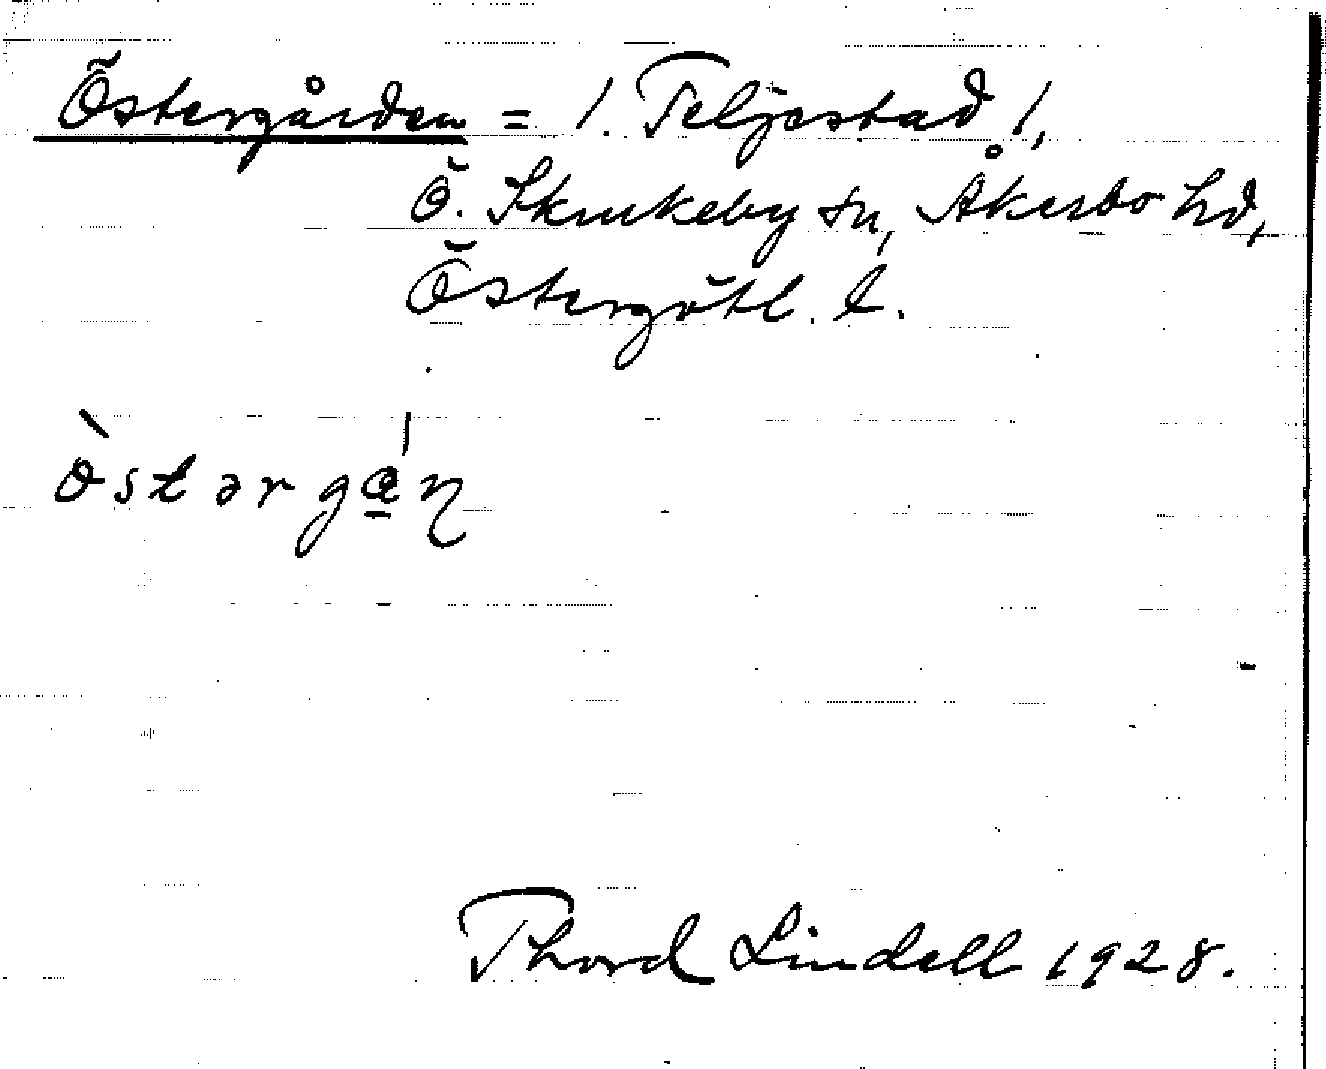 Östergården = 1. Teljestad 1,
Ö. Skrukeby sn, Åkerbo hd,
Östergötl. l.
Thord Lindell 1928.